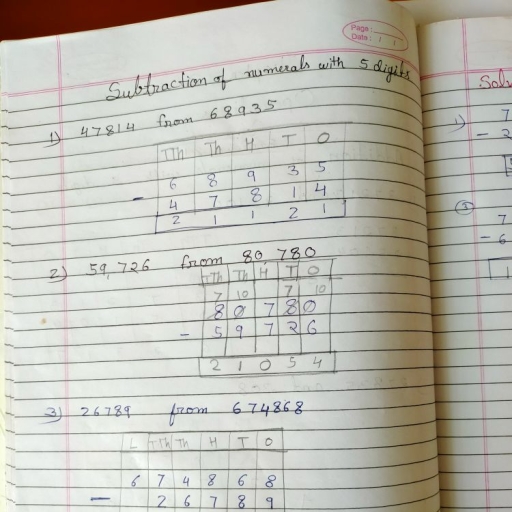 Page:
Date: / /
Subtraction of numerals with 5 digits
1) 47814 from 68935
TTh Th H T O
6 8 9 3 5
- 4 7 8 1 4
2 1 1 2 1
2) 59,726 from 80,780
TTh Th H T O
7 10 7 10
8 0 7 8 0
- 5 9 7 2 6
2 1 0 5 4
3) 26789 from 674868
L TTh Th H T O
6 7 4 8 6 8
- 2 6 7 8 9
Solv
1)
7
- 2
3)
7
- 6
1